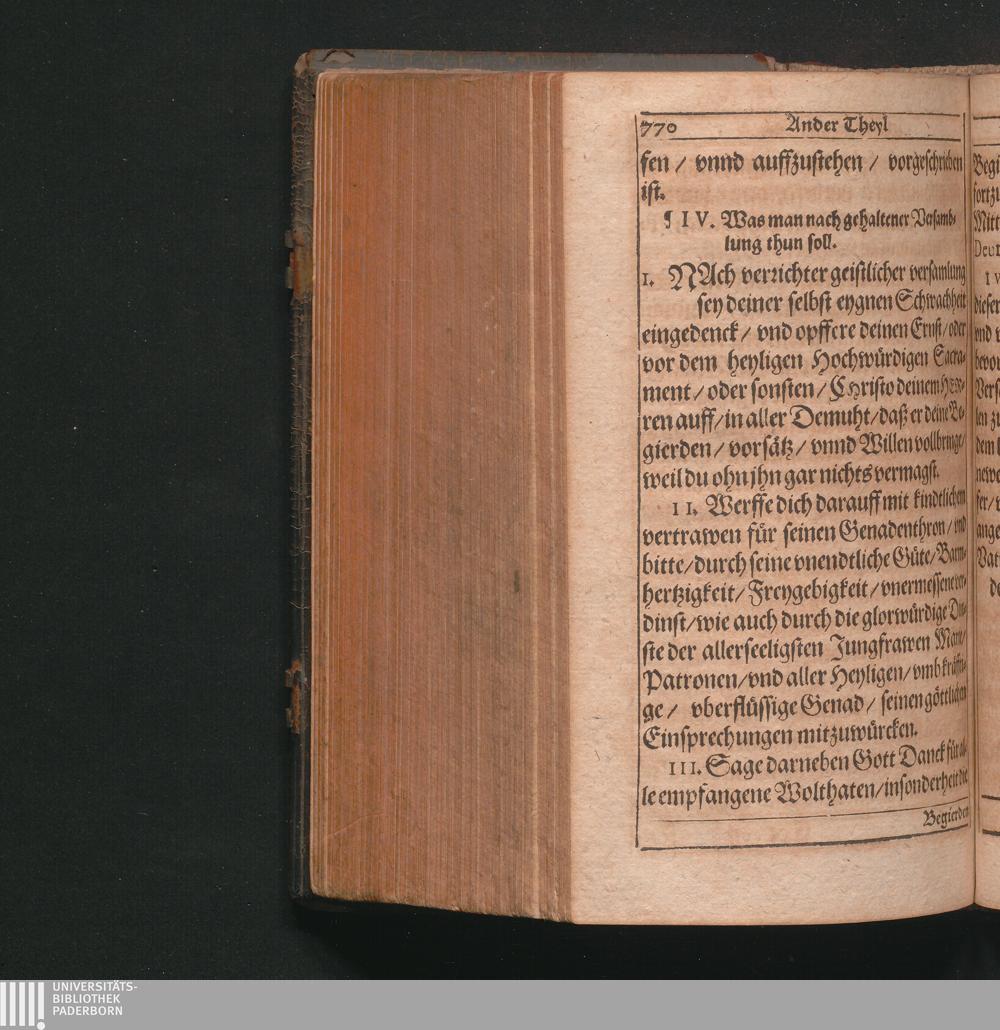 770 Ander Theyl
sen / vnnd auffzustehen / vorgeschrieben
ist.
¶ IV. Was man nach gehaltener Versamb-
lung thun soll.
I. NAch verrichter geistlicher versamlung
sey deiner selbst eygnen Schwachheit
eingedenck / vnd opffere deinen Ernst / oder
vor dem heyligen Hochwürdigen Sacra-
ment / oder sonsten / Christo deinem HEr-
ren auff / in aller Demuht / daß er deine Be-
gierden / vorsätz / vnnd Willen vollbringe /
weil du ohn jhn gar nichts vermagst.
II. Werffe dich darauff mit kindtlichem
vertrawen für seinen Genadenthron / vnd
bitte / durch seine vnendtliche Güte / Barm-
hertzigkeit / Freygebigkeit / vnermessene ver-
dinst / wie auch durch die glorwürdige Din-
ste der allerseeligsten Jungfrawen Marie /
Patronen / vnd aller Heyligen / vmb kräffti-
ge / vberflüssige Genad / seinen göttlichen
Einsprechungen mitzuwürcken.
III. Sage darneben Gott Danck für al-
le empfangene Wolthaten / insonderheit die
Begierden
UNIVERSITÄTS-
BIBLIOTHEK
PADERBORN